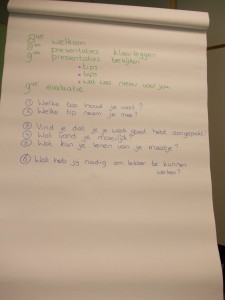 welkom
presentaties klaarleggen
presentaties bekijken
• tips
• tops
• wat was nieuw voor jou
evaluatie
① Welke top houd je vast?
② Welke tip neem je mee?
③ Vind je dat je je werk goed hebt aangepakt?
④ Wat vond je moeilijk?
⑤ Wat kun je leren van je maatje?
⑥ Wat heb jij nodig om lekker te kunnen
werken?